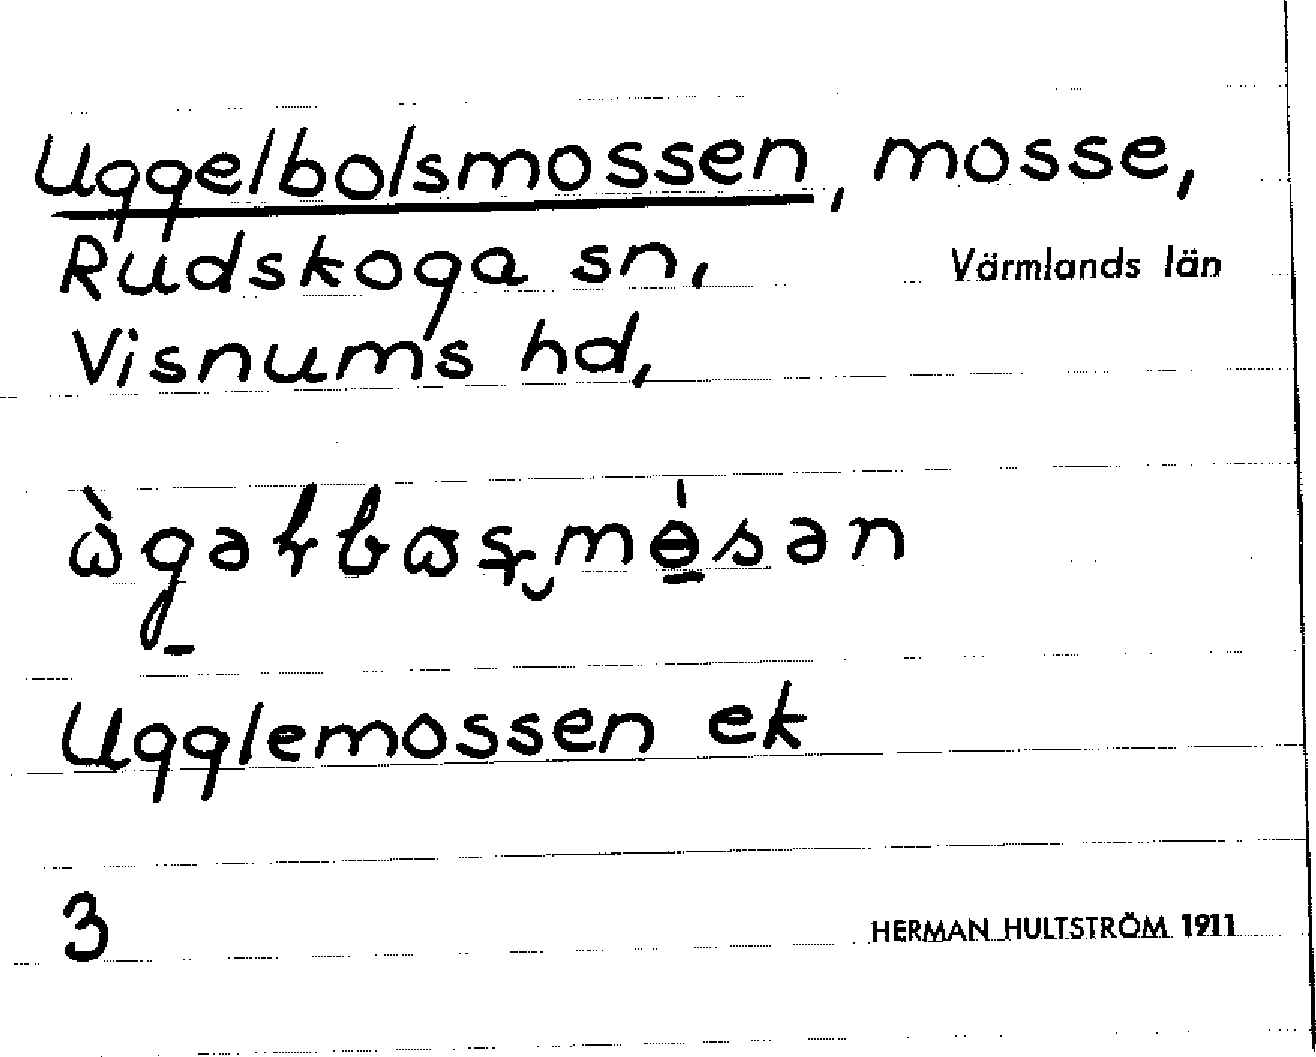 Uggelbolsmossen, mosse,
Rudskoga sn, Värmlands län
Visnums hd,
Ugglemossen ek
3 HERMAN HULTSTRÖM 1911